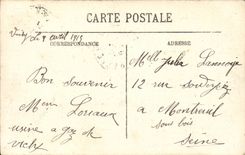 CARTE POSTALE
CORRESPONDANCE
ADRESSE
le 9 avril 1915
Bon souvenir
Loriaux
usine a gaz de
vichy
Melle Julia
12 rue
a Montreuil
sous bois
Seine